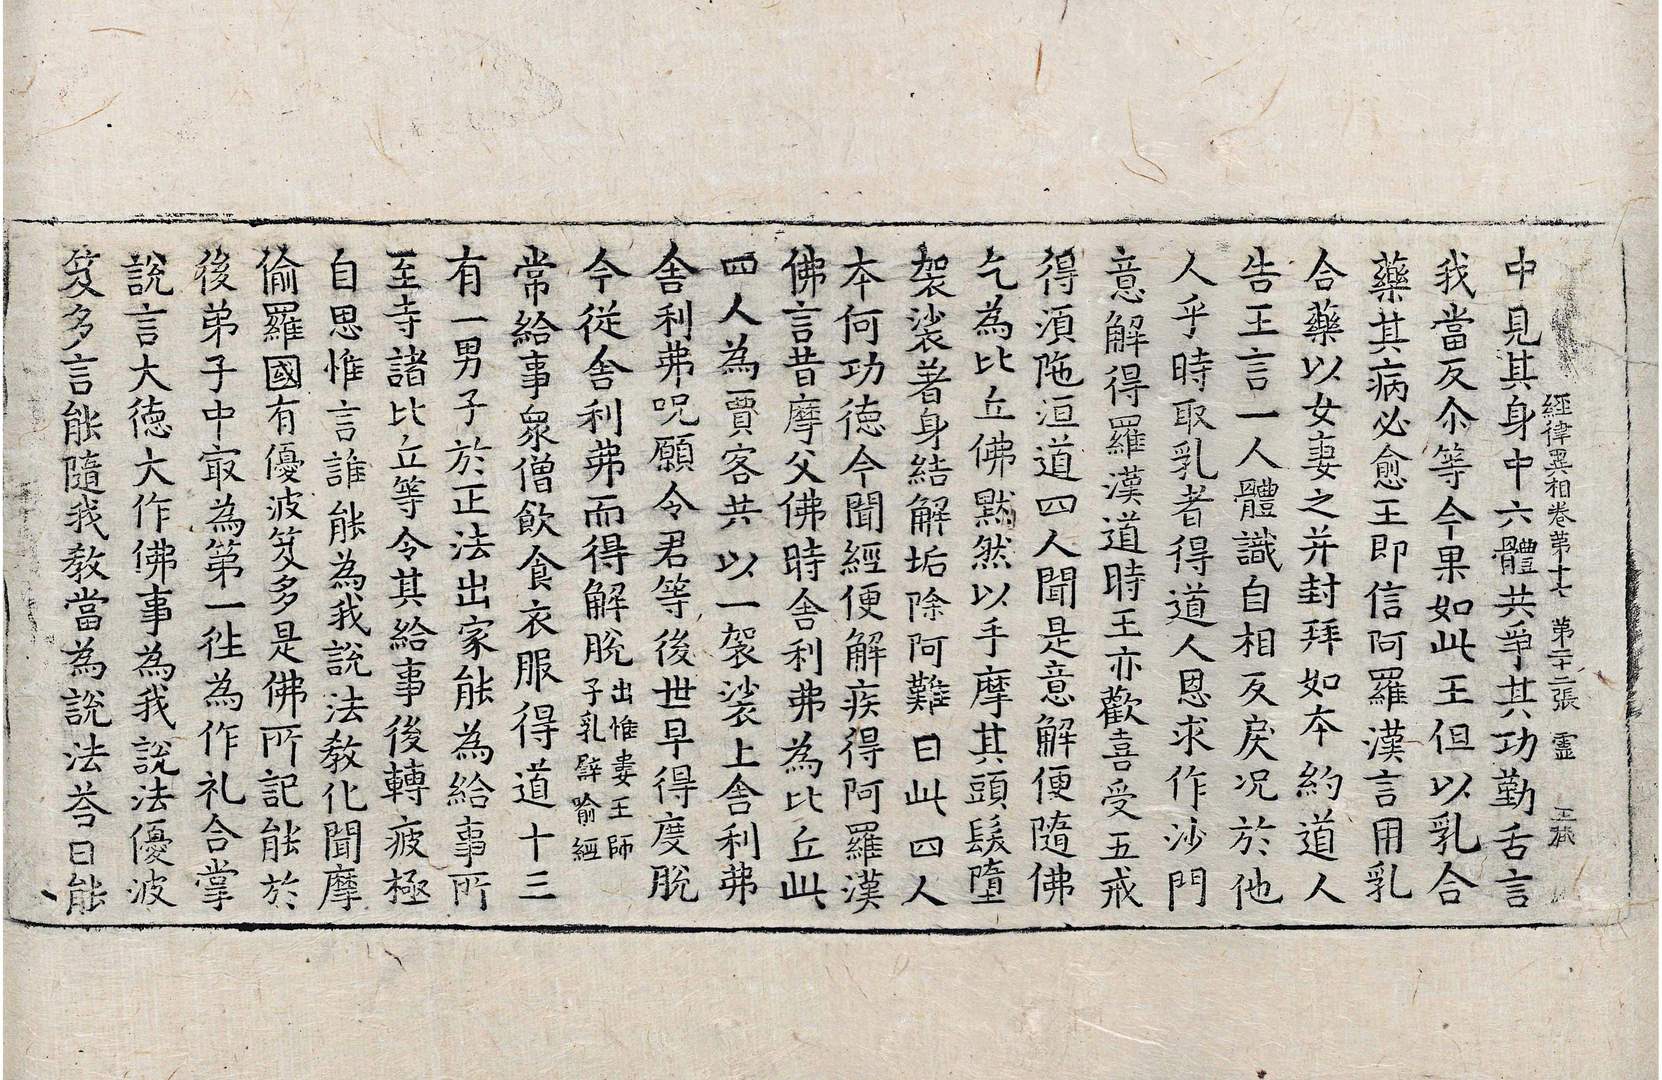 經律異相卷第十七 第二十二張 靈
中見其身中六體共爭其功勤舌言
我當反尒等今果如此王但以乳合
藥其病必愈王即信阿羅漢言用乳
合藥以女妻之并封拜如本約道人
告王言一人體識自相反戾况於他
人乎時取乳者得道人恩求作沙門
意解得羅漢道時王亦歡喜受五戒
得湏陁洹道四人聞是意解便隨佛
乞為比丘佛默然以手摩其頭髮墮
袈裟著身結解垢除阿難曰此四人
本何功德今聞經便解疾得阿羅漢
佛言昔摩父佛時舍利弗為比丘此
四人為賈客共以一袈裟上舍利弗
舍利弗呪願令君等後世早得度脫
今從舍利弗而得解脫出惟婁王師子乳譬喻經
常給事眾僧飲食衣服得道十三
有一男子於正法出家能為給事所
至寺諸比丘等令其給事後轉疲極
自思惟言誰能為我說法教化聞摩
偷羅國有優波笈多是佛所記能於
後弟子中㝡為第一徃為作礼合掌
說言大德大作佛事為我說法優波
笈多言能隨我教當為說法荅曰能